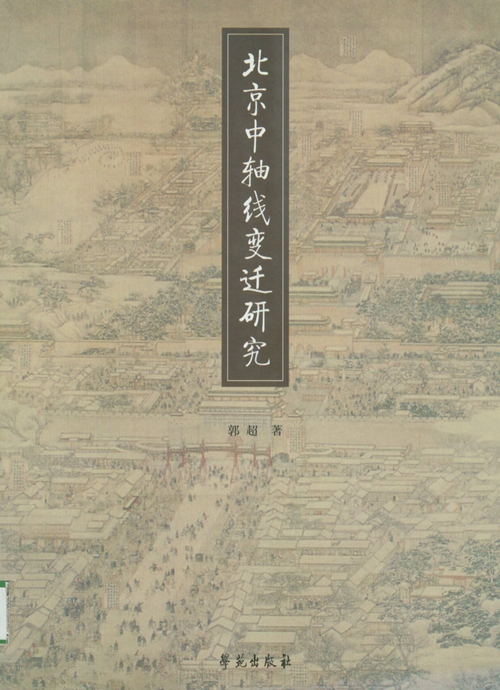 北京中轴线变迁研究
郭超 著
學苑出版社